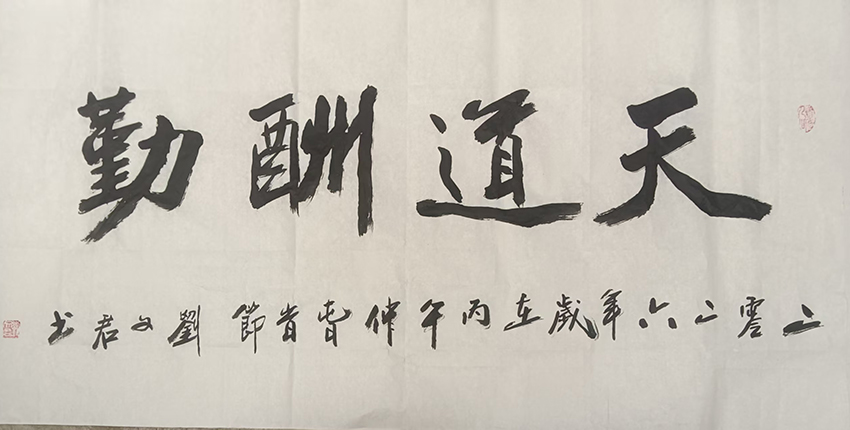 天道酬勤
二零二六年歲在丙午仲旾首節劉文君书